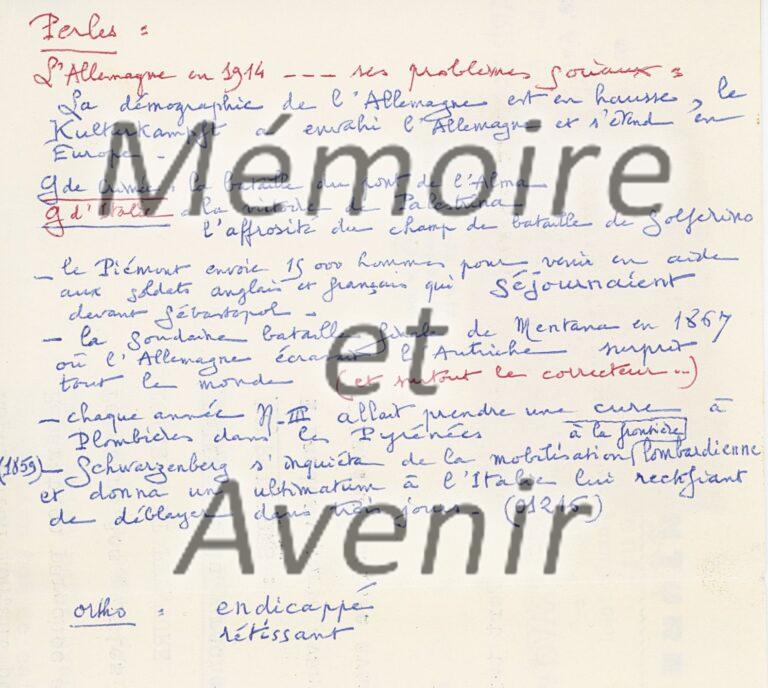 Perles :
L'Allemagne en 1914 --- ses problèmes sociaux :
La démographie de l'Allemagne est en hausse, le
Kulturkampft a envahi l'Allemagne et s'étend en
Europe.
G de Crimée : la bataille du pont de l'Alma
G d'Italie : la victoire de Palestrina
l'affrosité du champ de bataille de Solferino
- le Piémont envoie 15 000 hommes pour venir en aide
aux soldats anglais et français qui séjournaient
devant Sébastopol -
- la soudaine bataille finale de Mentana en 1867
où l'Allemagne écrasait l'Autriche surprit
tout le monde (et surtout le correcteur...)
- chaque année N. III allait prendre une cure à
Plombières dans les Pyrénées
à la frontière
(1859) - Schwarzenberg s'inquiéta de la mobilisation lombardienne
et donna un ultimatum à l'Italie lui
de déblayer dans trois jours (01216)
ortho : endicappé
rétissant
Mémoire
et
Avenir